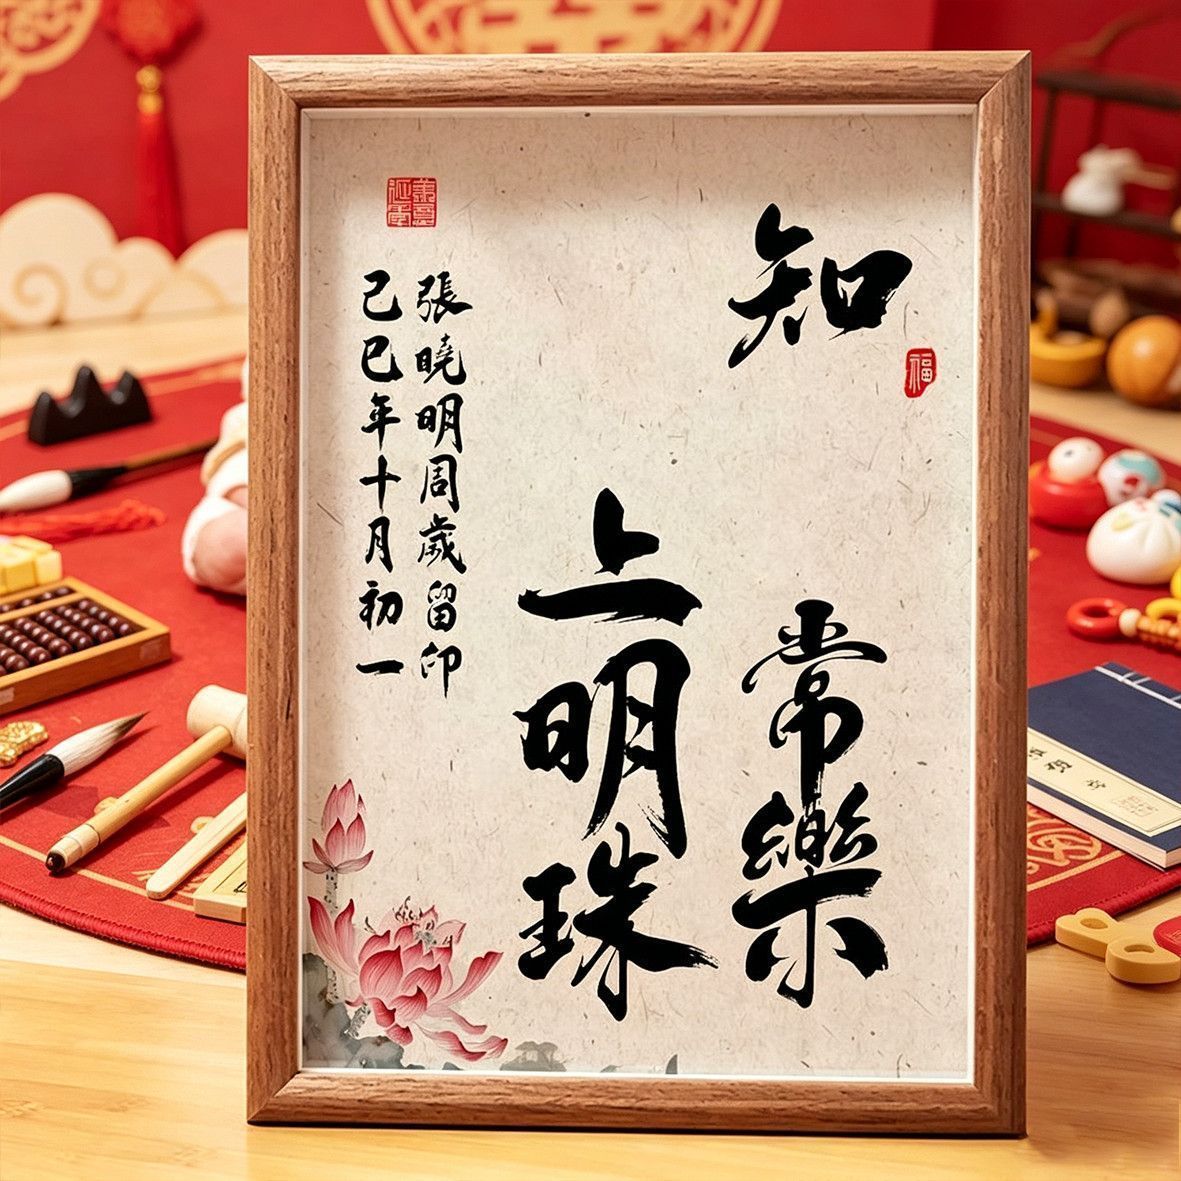 知
福
常樂
上明珠
張曉明周歲留印
己巳年十月初一